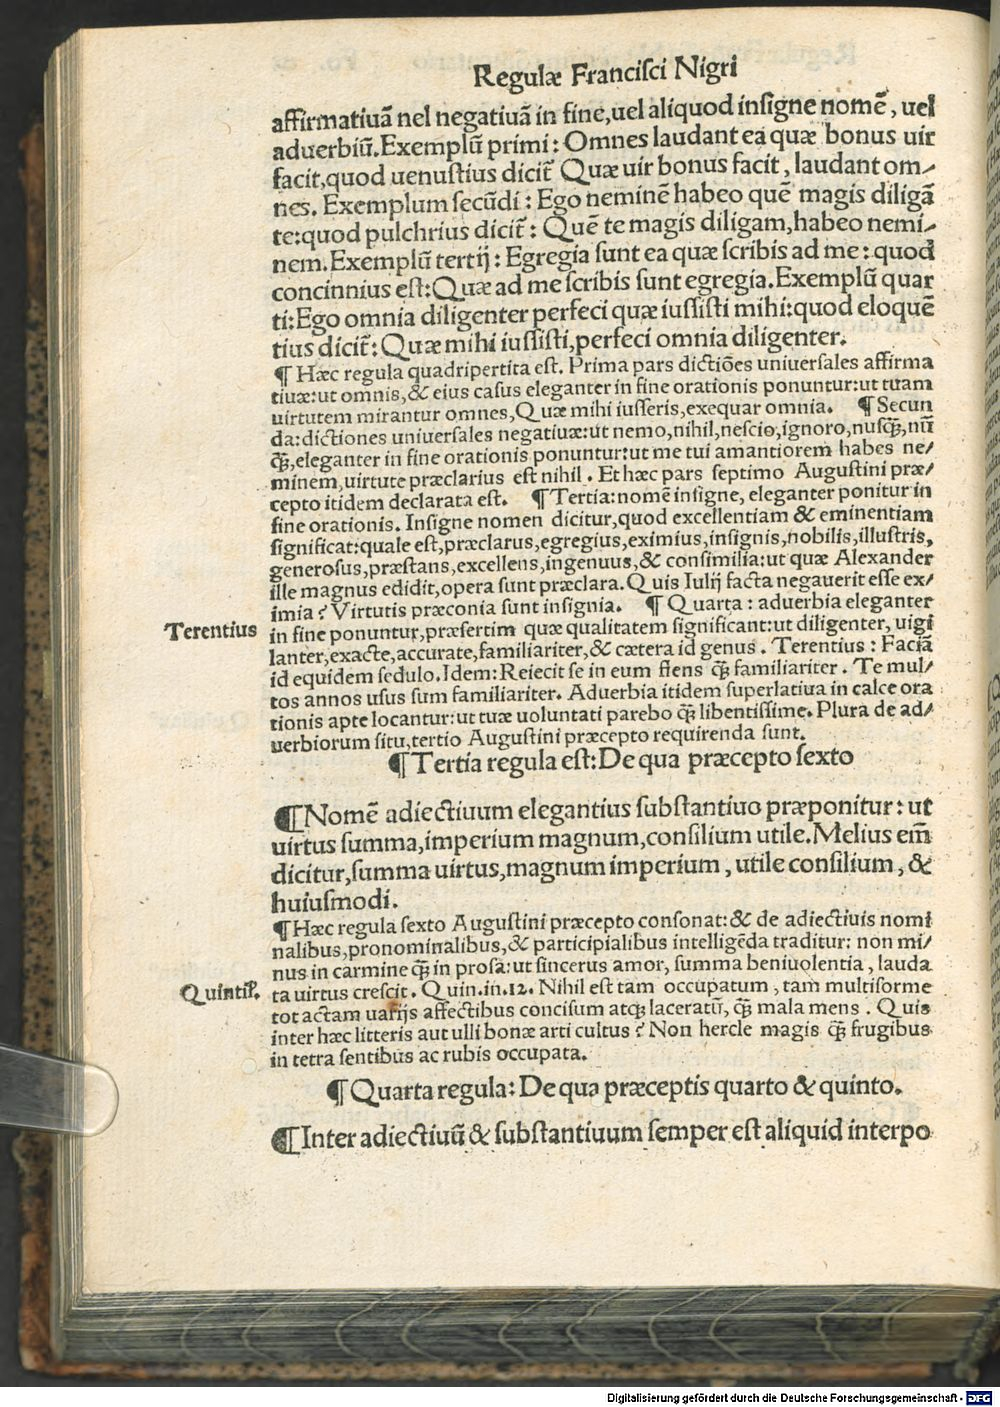 Regulæ Franciſci Nigri
affirmatiuã nel negatiuã in fine,uel aliquod inſigne nomẽ, uel
aduerbiũ.Exemplũ primi: Omnes laudant ea quæ bonus uir
facit,quod uenuſtius dicit̃ Quæ uir bonus facit, laudant om/
nes. Exemplum ſecũdi: Ego neminẽ habeo quẽ magis diligã
te:quod pulchrius dicit̃: Quẽ te magis diligam,habeo nemi/
nem.Exemplũ tertij: Egregia ſunt ea quæ ſcribis ad me: quod
concinnius eſt:Quæ ad me ſcribis ſunt egregia.Exemplũ quar
ti:Ego omnia diligenter perfeci quæ iuſſiſti mihi:quod eloquẽ
tius dicit̃: Quæ mihi iuſſiſti,perfeci omnia diligenter.
¶ Hæc regula quadripertita eſt. Prima pars dictiões uniuerſales affirma
tiuæ:ut omnis,& eius caſus eleganter in fine orationis ponuntur:ut tuam
uirtutem mirantur omnes,Quæ mihi iuſſeris,exequar omnia. ¶ Secun
da:dictiones uniuerſales negatiuæ:ut nemo,nihil,neſcio,ignoro,nuſq̃,nũ
q̃,eleganter in fine orationis ponuntur:ut me tui amantiorem habes ne/
minem,uirtute præclarius eſt nihil. Et hæc pars ſeptimo Auguſtini præ/
cepto itidem declarata eſt. ¶ Tertia:nomẽ inſigne, eleganter ponitur in
fine orationis. Inſigne nomen dicitur,quod excellentiam & eminentiam
ſignificat:quale eſt,præclarus,egregius,eximius,inſignis,nobilis,illuſtris,
generoſus,præſtans,excellens,ingenuus,& conſimilia:ut quæ Alexander
ille magnus edidit,opera ſunt præclara.Quis Iulij facta negauerit eſſe ex/
imia? Virtutis præconia ſunt inſignia. ¶ Quarta: aduerbia eleganter
Terentius
in fine ponuntur,præſertim quæ qualitatem ſignificant:ut diligenter, uigi
lanter,exacte,accurate,familiariter,& cætera id genus. Terentius: Faciã
id equidem ſedulo.Idem:Reiecit ſe in eum flens q̃ familiariter. Te mul/
tos annos uſus ſum familiariter. Aduerbia itidem ſuperlatiua in calce ora
tionis apte locantur:ut tuæ uoluntati parebo q̃ libentiſſime. Plura de ad/
uerbiorum ſitu,tertio Auguſtini præcepto requirenda ſunt.
¶ Tertia regula eſt:De qua præcepto ſexto
¶ Nomẽ adiectiuum elegantius ſubſtantiuo præponitur: ut
uirtus ſumma,imperium magnum,conſilium utile.Melius em̃
dicitur,ſumma uirtus,magnum imperium, utile conſilium, &
huiuſmodi.
¶ Hæc regula ſexto Auguſtini præcepto conſonat:& de adiectiuis nomi
nalibus,pronominalibus,& participialibus intelligẽda traditur: non mi/
nus in carmine q̃ in proſa:ut ſincerus amor, ſumma beniuolentia, lauda
Quintil.
ta uirtus creſcit. Quin.in.12. Nihil eſt tam occupatum, tam multiforme
tot ac tam uarijs affectibus conciſum atq; laceratũ, q̃ mala mens. Quis
inter hæc litteris aut ulli bonæ arti cultus? Non hercle magis q̃ frugibus
in tetra ſentibus ac rubis occupata.
¶ Quarta regula: De qua præceptis quarto & quinto.
¶ Inter adiectiuũ & ſubſtantiuum ſemper eſt aliquid interpo
Digitalisierung gefördert durch die Deutsche Forschungsgemeinschaft - DFG